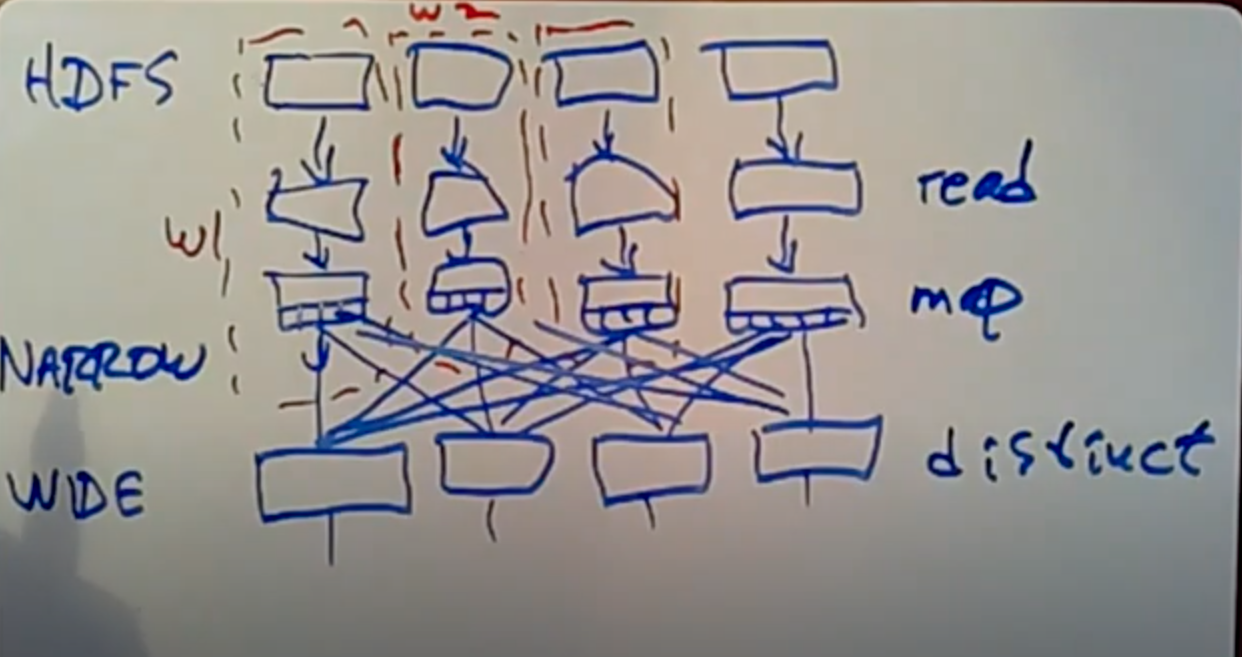 W2
HDFS
read
W1
map
NARROW
distinct
WIDE